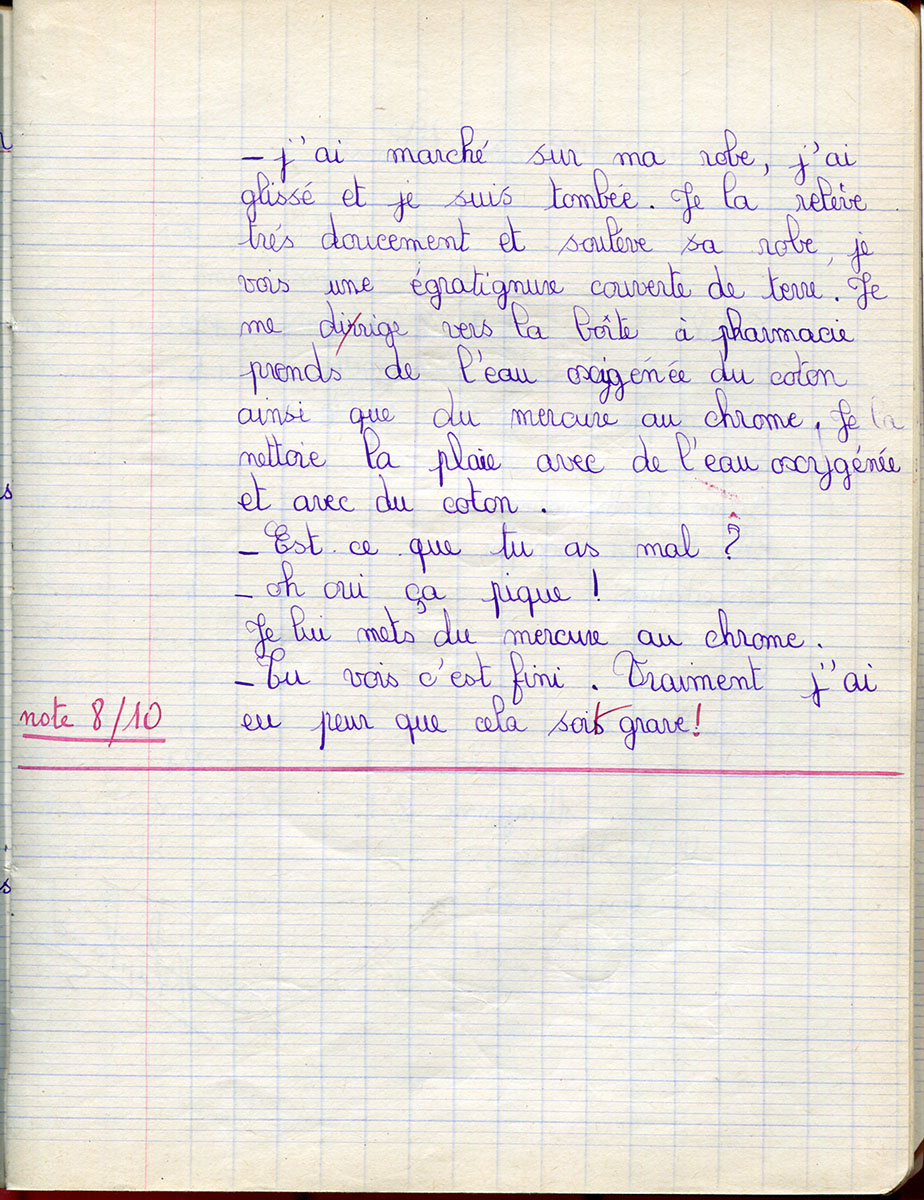 – j'ai marché sur ma robe, j'ai
glissé et je suis tombée. Je la relève
très doucement et soulève sa robe, je
vois une égratignure couverte de terre. Je
me dirrige vers la boîte à pharmacie
prends de l'eau oxygénée du coton
ainsi que du mercure au chrome. Je la
nettoie la plaie avec de l'eau oxygénée
et avec du coton.
– Est ce que tu as mal ?
– oh oui ça pique !
Je lui mets du mercure au chrome.
– Tu vois c'est fini. Vraiment j'ai
note 8/10 eu peur que cela soit grave!
s
s